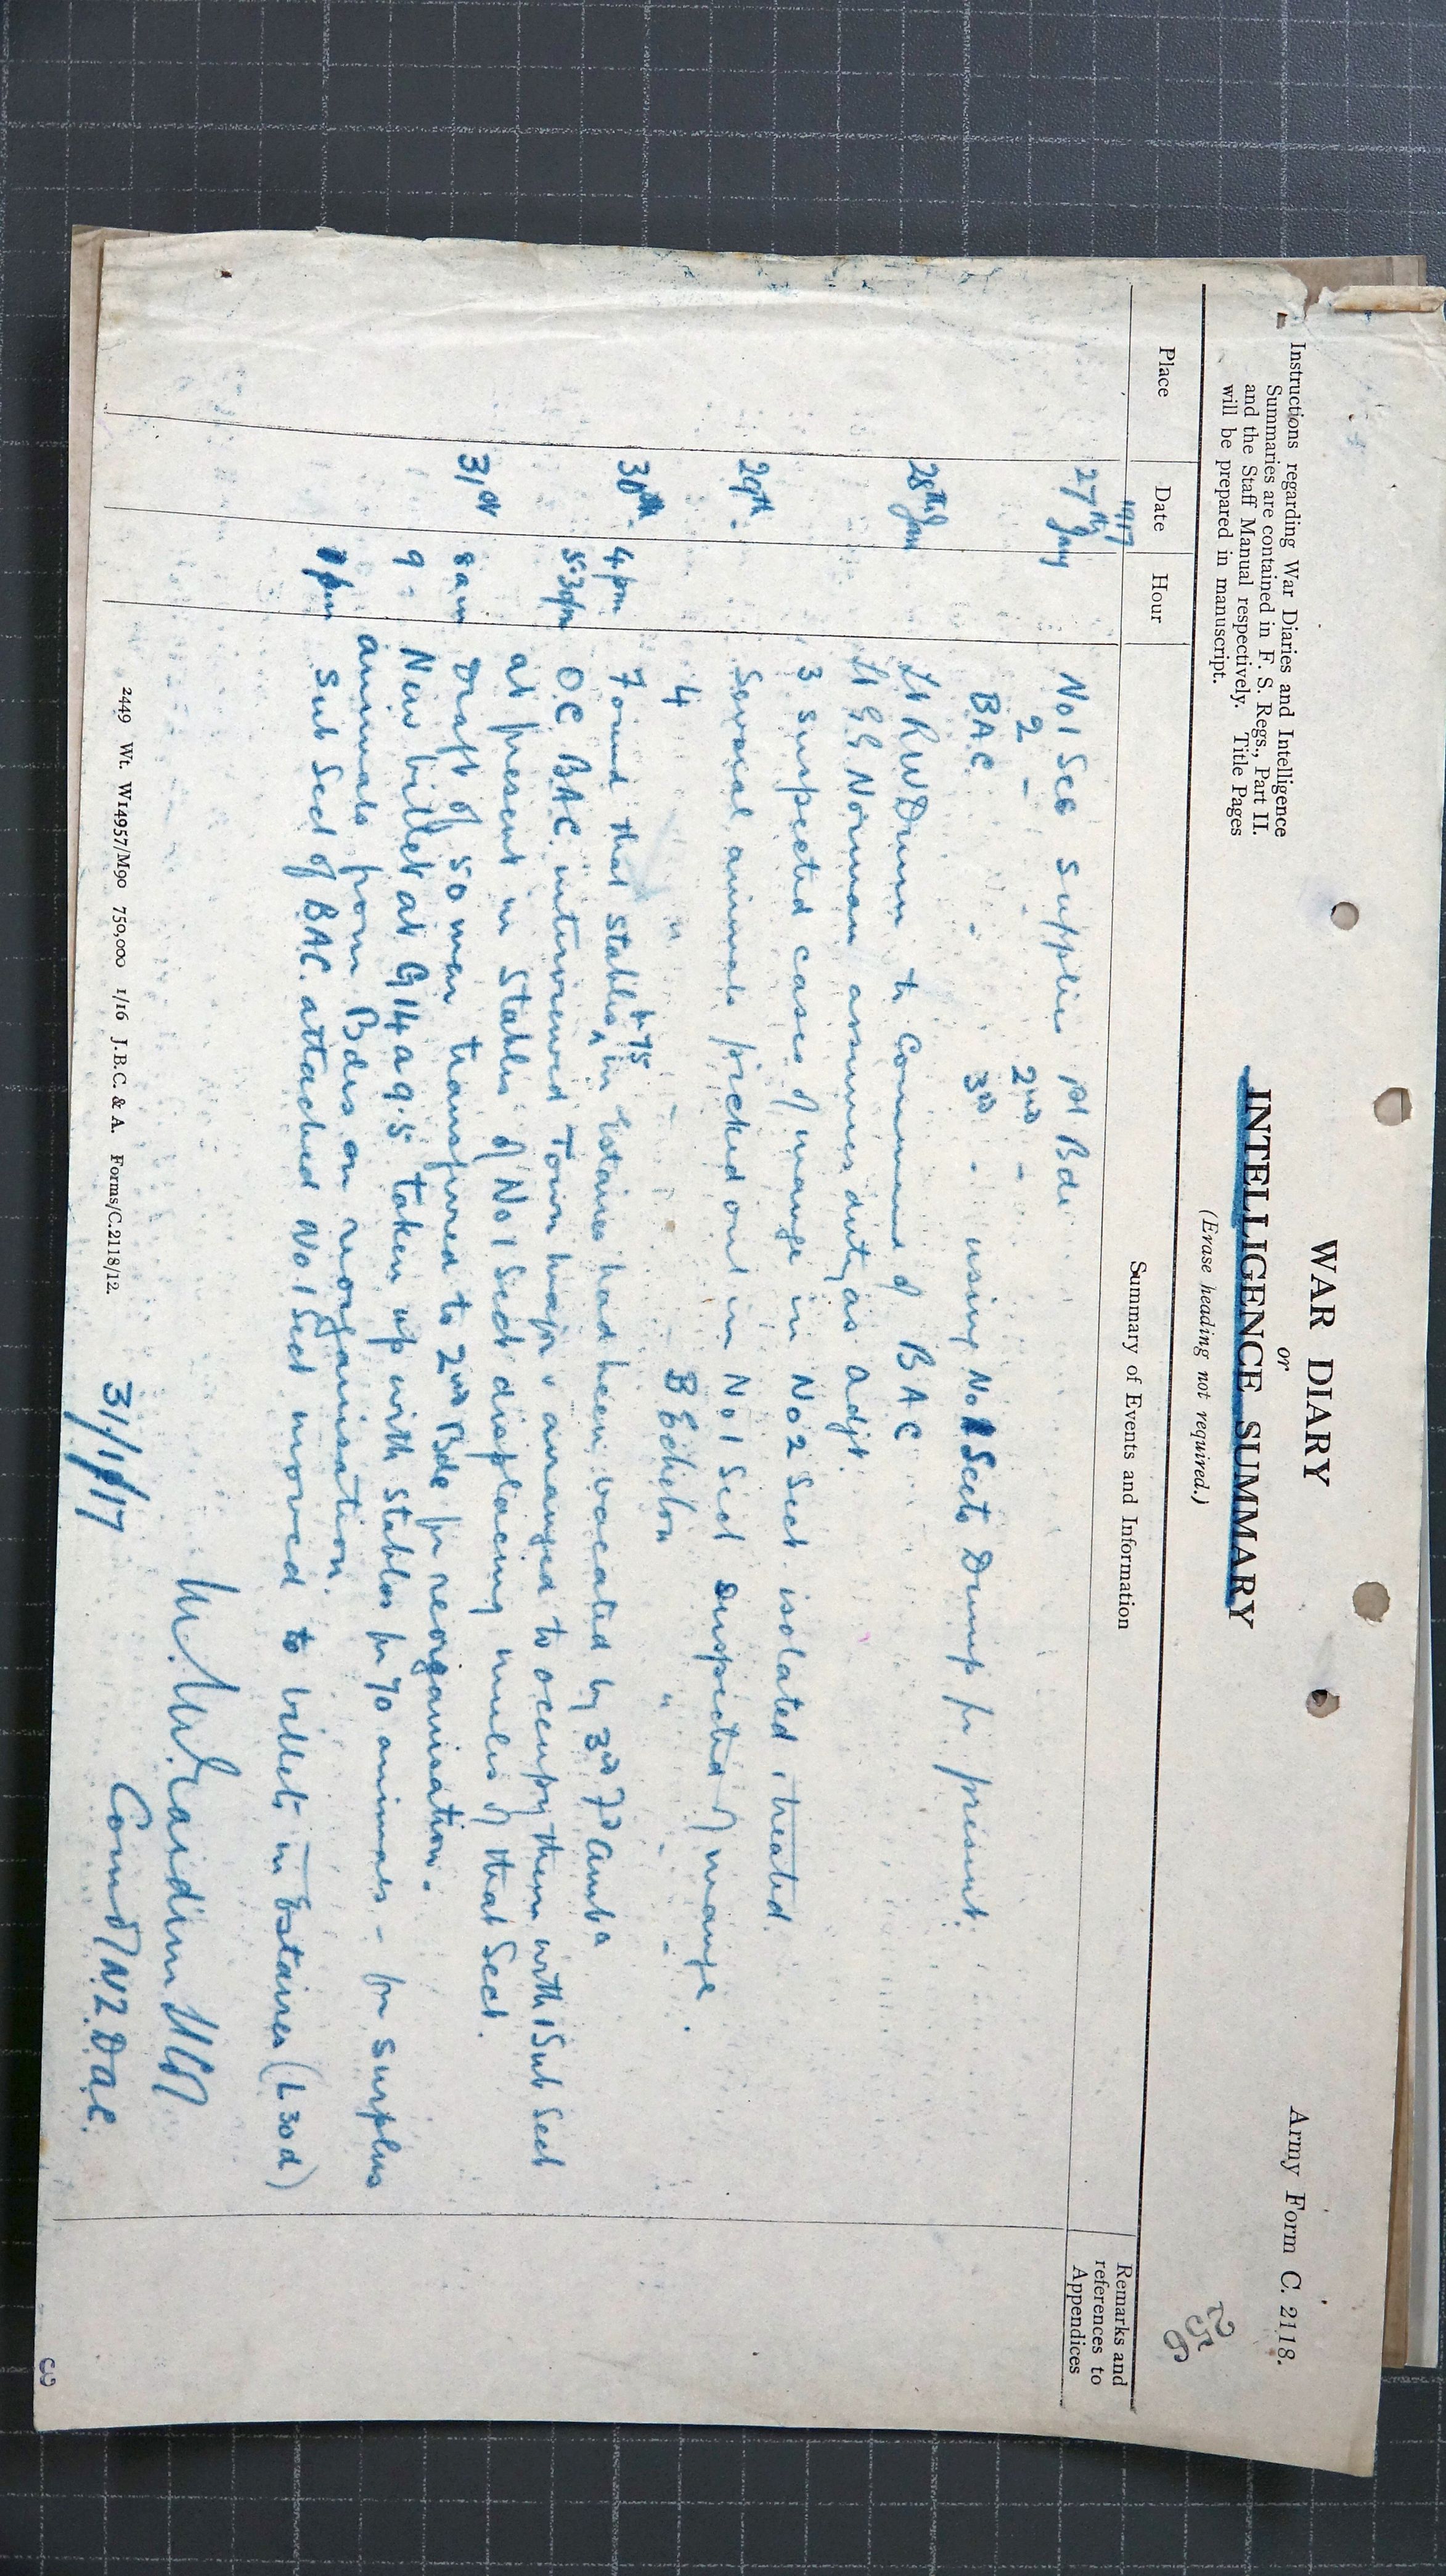 Army Form C. 2118.
WAR DIARY
or
INTELLIGENCE SUMMARY
(Erase heading not required.)
256
Instructions regarding War Diaries and Intelligence
Summaries are contained in F. S. Regs., Part II.
and the Staff Manual respectively. Title Pages
will be prepared in manuscript.
Place Date Hour Summary of Events and Information Remarks and references to Appendices
1917
27th Jany No 1 Sec supplies 1st Bde
2 - 2nd -
BAC. 3rd . using No 1 Sects Dump for present.
28th Jan Lt R W Dunn to Command of BAC
Lt G G Norman assumes duty as adjt.
3 suspected cases of mange in No 2 Sect. isolated & treated.
29th. Several animals picked out in No 1 Sect suspected of mange.
4 " - B Echelon " - -
30th. 4 pm Found that stables for 75 in Estaires had been vacated by 3rd Fd Amb a
5.30pm OC BAC. interviewed Town major & arranged to occupy them with 1 Sub Sect
at present in stables of No 1 Sect displacing mules of that Sect.
31st 8 am Draft of 50 men transferred to 2nd Bde for reorganisation.
9 - New billet at G 14 a 9.5 taken up with stables for 70 animals - for surplus
animals from Bdes on reorganisation.
1 pm Sub Sect of BAC. attached No 1 Sect moved to billets in Estaires (L 30 d)
Comd NZ DAC.
31/1/17
2449 Wt. W14957/M90 750,000 1/16 J.B.C. & A. Forms/C.2118/12.